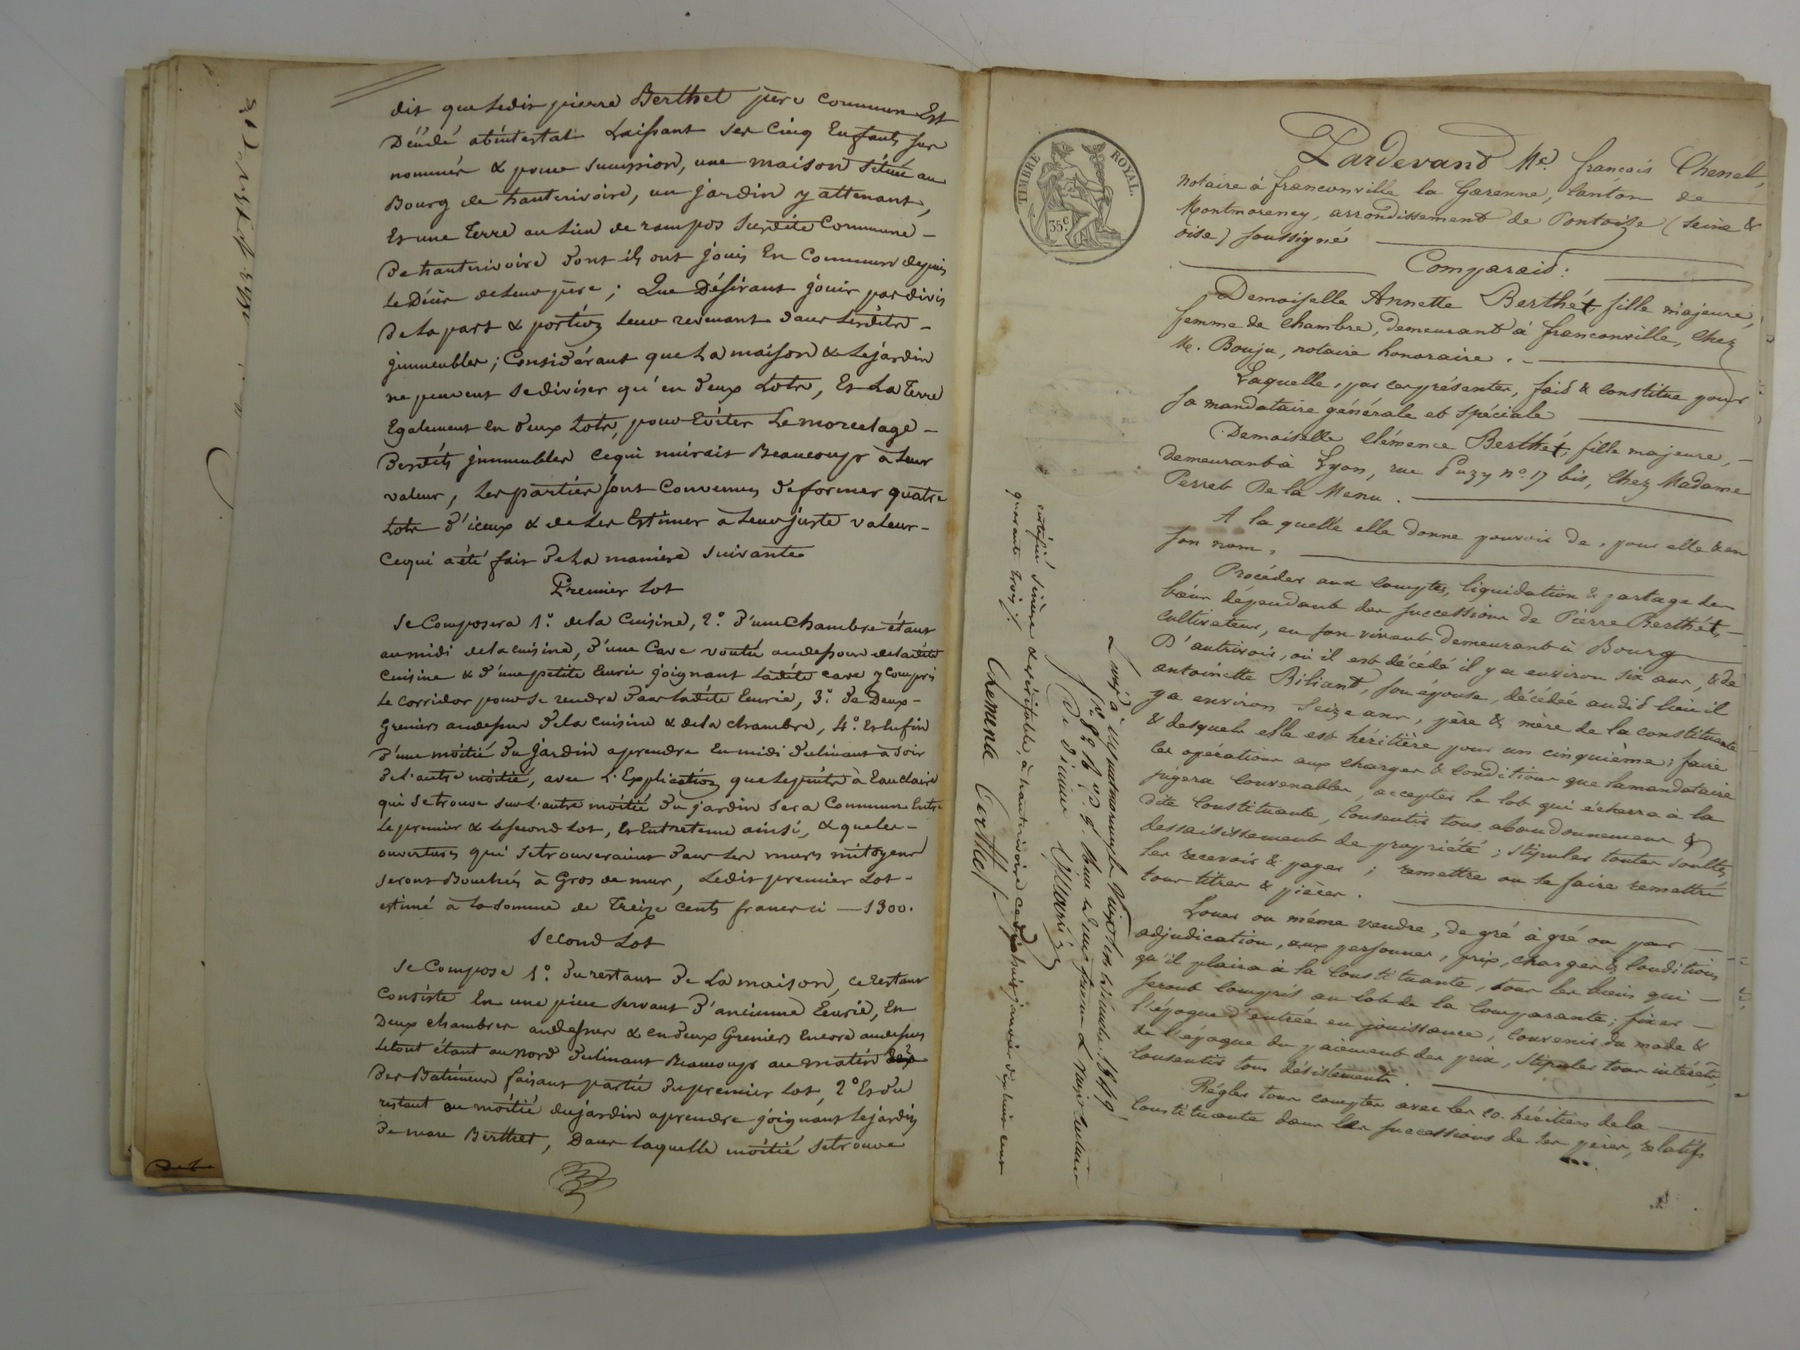 dit que Ledit pierre Berthet père commun Est
Décédé abintestat Laissant ses Cinq Enfants sus
nommés & pour succession, une maison située au
Bourg de hauterivoire, un jardin y attenant,
Et une Terre au Lieu de rampos Susdite Commune –
De hauterivoire dont ils ont jouis En Commun depuis
le Décès de Leur père ; Que Désirant jouir par divis
De La part & portion Leur revenant dans Lesdits –
jmmeubles ; Considérant que La maison & Le jardin
ne peuvent se diviser qu'en deux Lots, Et La Terre
Egalement En deux Lots, pour Eviter Le morcelage –
Desdits jmmeubles ce qui nuirait Beaucoup à Leur
valeur, Les parties sont Convenues de former quatre
Lots d'iceux & de Les Estimer à Leur juste valeur –
Ce qui a été fait De La manière suivante
Premier Lot
Se Composera 1.º de La Cuisine, 2.º d'une Chambre étant
au midi de La cuisine, d'une Cave voutée au dessous de Ladite
Cuisine & d'une petite Ecurie joignant Ladite cave y Compris
Le corridor pour se rendre dans Ladite Ecurie, 3.º de Deux –
Greniers au dessus de La Cuisine & de La chambre, 4.º Et Enfin
d'une moitié du jardin à prendre En midi à soir
de L'autre moitié, avec L'Explication que Le à Eau Claire
qui se trouve sur L'autre moitié du jardin sera Commun Entre
Le premier & Le second Lot, Et Entretenu ainsi, & que Les –
ouvertures qui se trouveraient dans Les murs mitoyens
seront Bouchées à Gros de mur, Ledit premier Lot –
estimé à La somme de Treize cents francs ci — 1300.
Second Lot
Se Compose 1.º du restant de La maison, ce restant
Consiste En une pièce servant d'ancienne Ecurie, En
Deux chambres au dessus & en deux Greniers Encore au dessus
Le tout étant au nord Beaucoup au matin
Des Batiments faisant partie du premier Lot, 2.º Et du
restant ou moitié du jardin à prendre joignant Le jardin
De marc Berthet, Dans Laquelle moitié se trouve
TIMBRE ROYAL.
35.c
Pardevant Me. françois Chenel,
notaire à franconville la Garenne, Canton de —
Montmorency, arrondissement de Pontoise (Seine &
oise) soussigné
Comparait :
Demoiselle Annette Berthét fille majeure,
femme de chambre, demeurant à franconville, chez
M. Bouju, notaire honoraire. —
Laquelle, par ces présentes, fait & constitue pour
sa mandataire générale et spéciale
Demoiselle Clémence Berthét, fille majeure, —
demeurant à Lyon, rue Puzy nº. 17 bis, chez Madame
Perret De la Menu.
A la quelle elle donne pouvoir de, pour elle & en
son nom,
Procéder aux comptes, liquidation & partage des
biens dépendant des successions de Pierre Berthét, —
cultivateur, en son vivant demeurant à Bourg
D'autrivoir, où il est décédé il y a environ six ans, & de
antoinette Biliant, son épouse, décédée audit lieu il
y a environ seize ans, père & mère de la constituante
& desquels elle est héritière pour un cinquième ; faire
les opérations aux charges & conditions que la mandataire
jugera convenables, accepter le lot qui écherra à la
dite constituante, Consentir tous abandonnement &
dessaisissement de propriété ; stipuler toutes soultes,
les recevoir & payer ; remettre ou se faire remettre
tous titres & pièces.
Louer ou même vendre, de gré à gré ou par —
adjudication, aux personnes, prix, charges & conditions
qu'il plaira à la constituante, tous les biens qui —
seront compris au lot de la Comparante ; fixer —
l'époque d'entrée en jouissance, convenir du mode &
de l'époque de paiement des prix, stipuler tous intérêts,
Consentir tous désistements.
Régler tous comptes avec les co. héritiers de la —
Constituante dans les successions de ses pères, relatifs
certifié sincère & véritable, à hauterivoire ce dix huit janvier dix huit cent
quarante trois.
Clemence Berthet